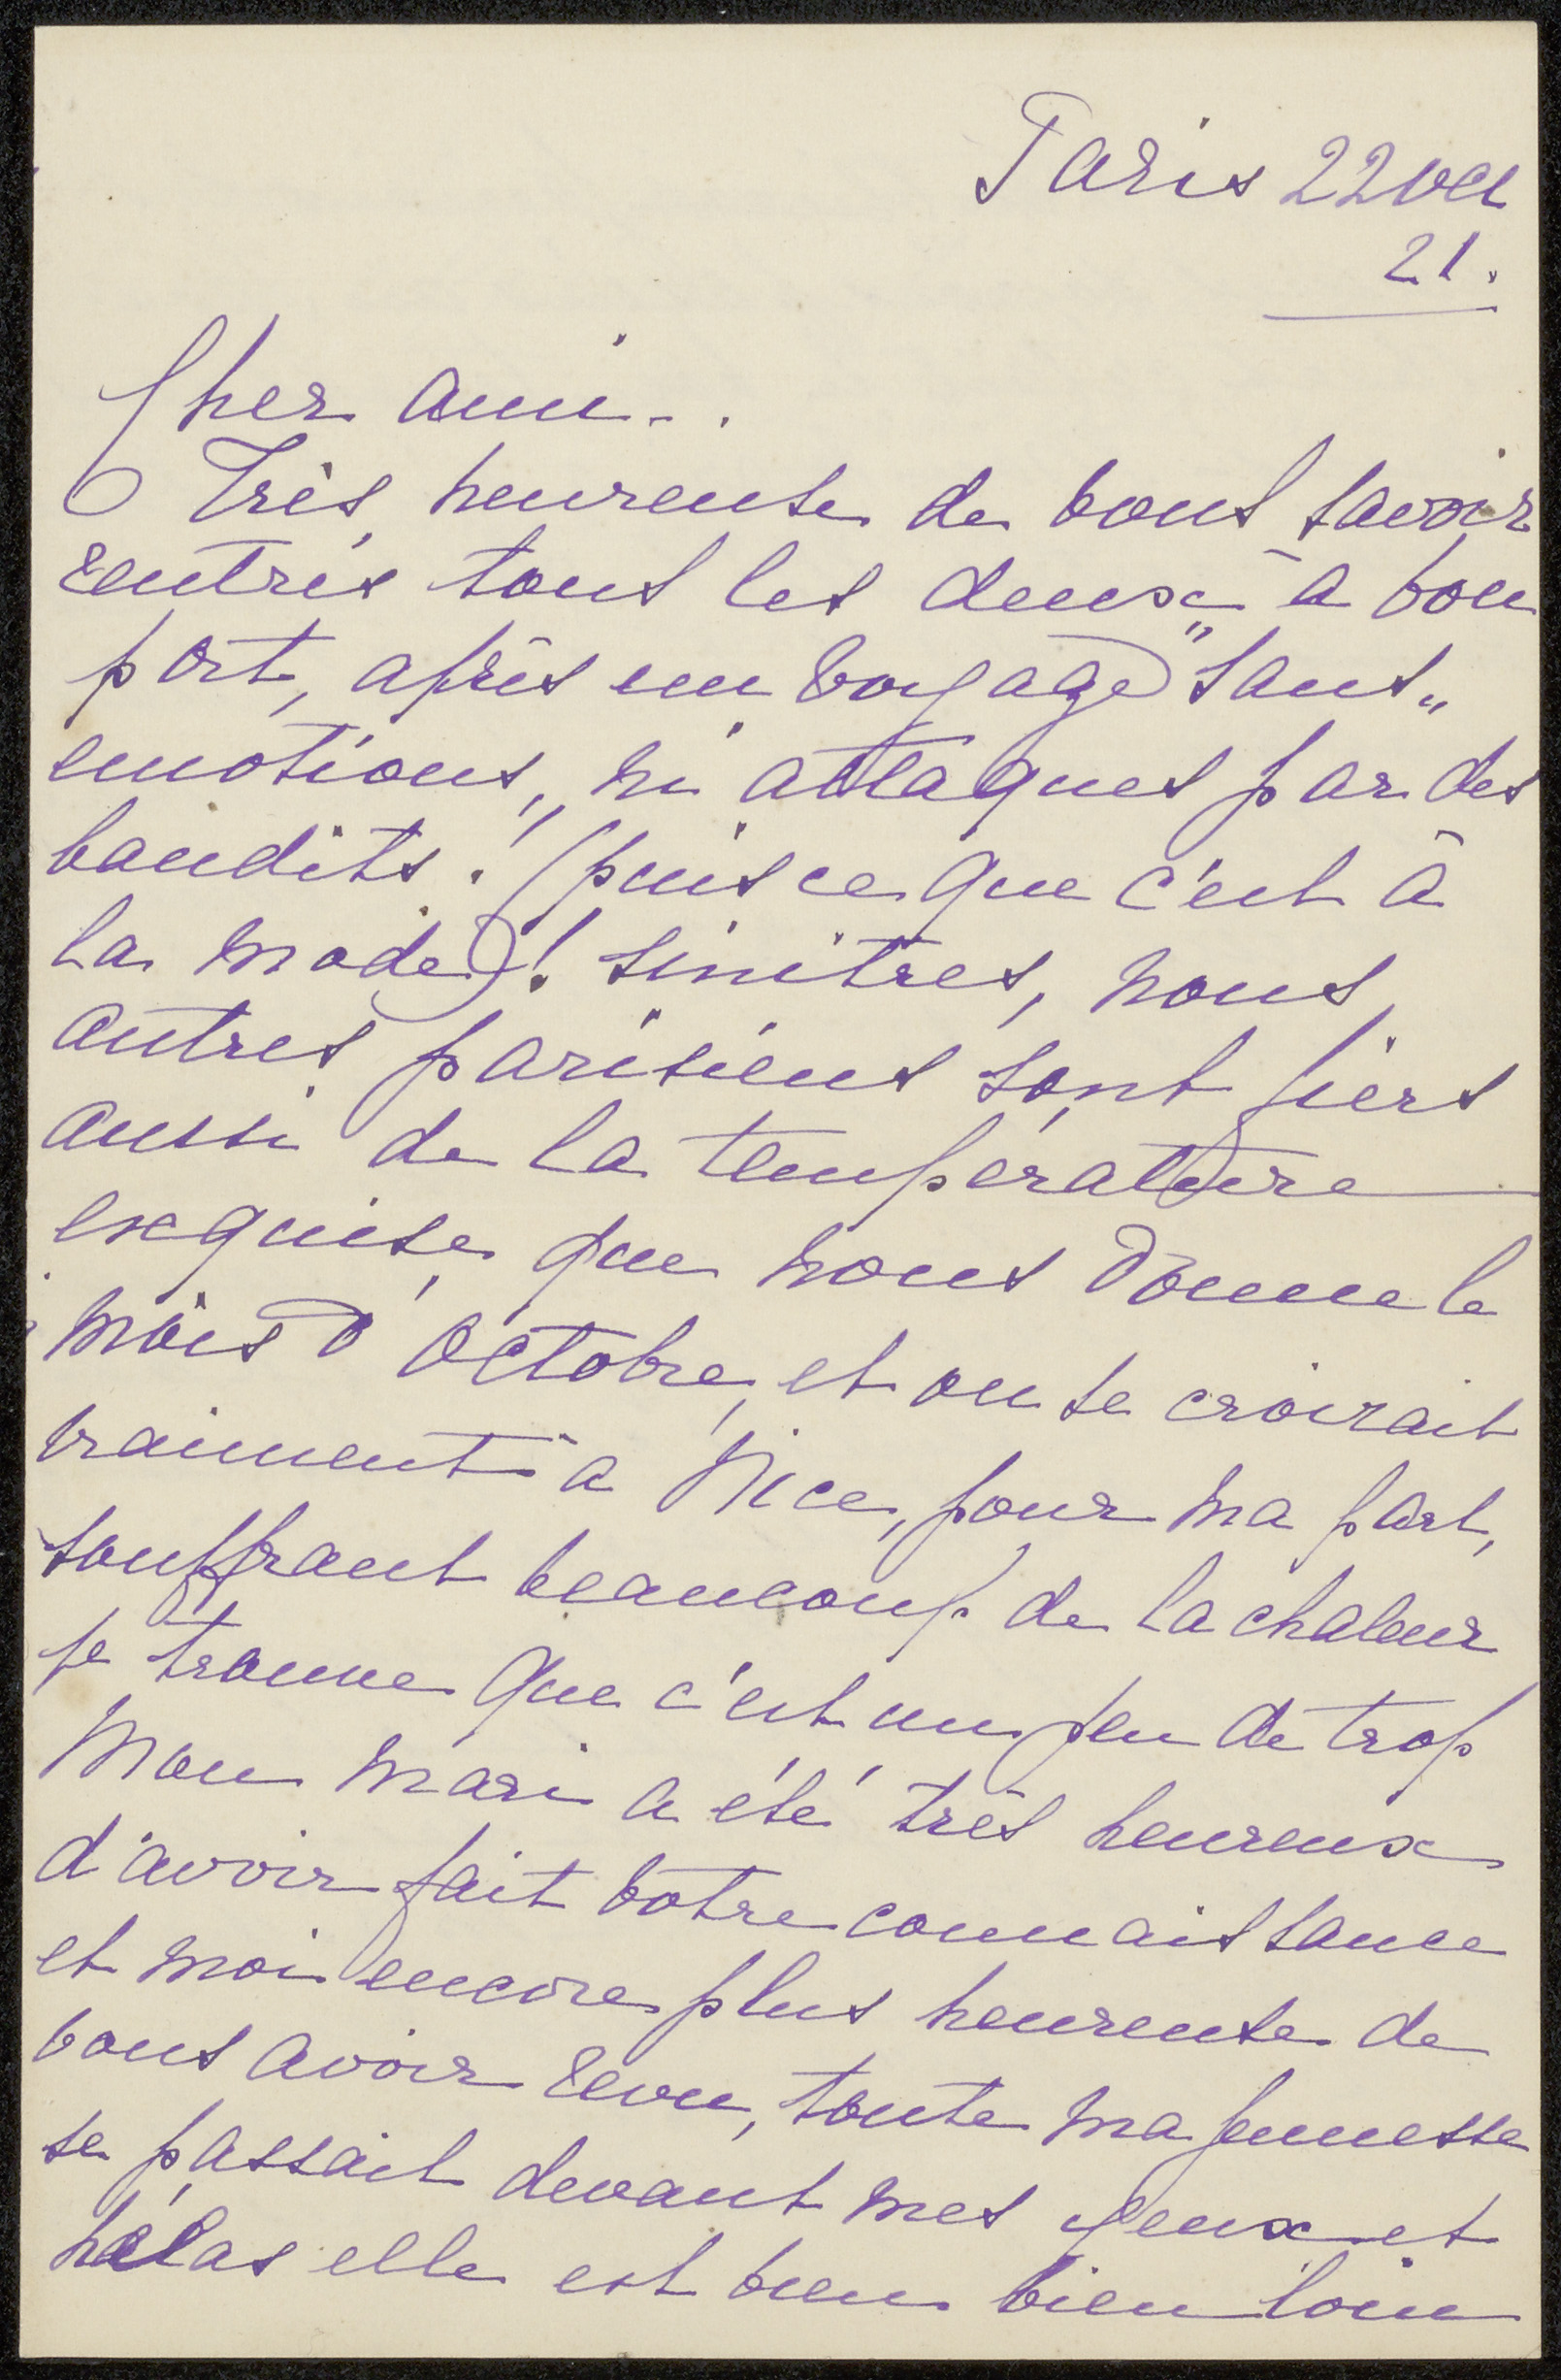 Paris 22 oct
21.
Cher ami..
Très heureuse de vous savoir
rentrés tous les deux à bon
port, après un voyage "sans"
emotions, ni attaques par des
bandits! (puisce que c'est à
la mode)! sinitres, nous
autres parisiens sont fiers
aussi de la température
exquise que nous donne le
mois d'octobre et on se croirait
vraiment à Nice, pour ma part,
souffrant beaucoup de la chaleur
je trouve que c'est un peu de trop
Mon mari a été très heureux
d'avoir fait votre connaissance
et moi encore plus heureuse de
vous avoir revu, toute ma jeunesse
se passait devant mes yeux et
hélas elle est bien bien loin